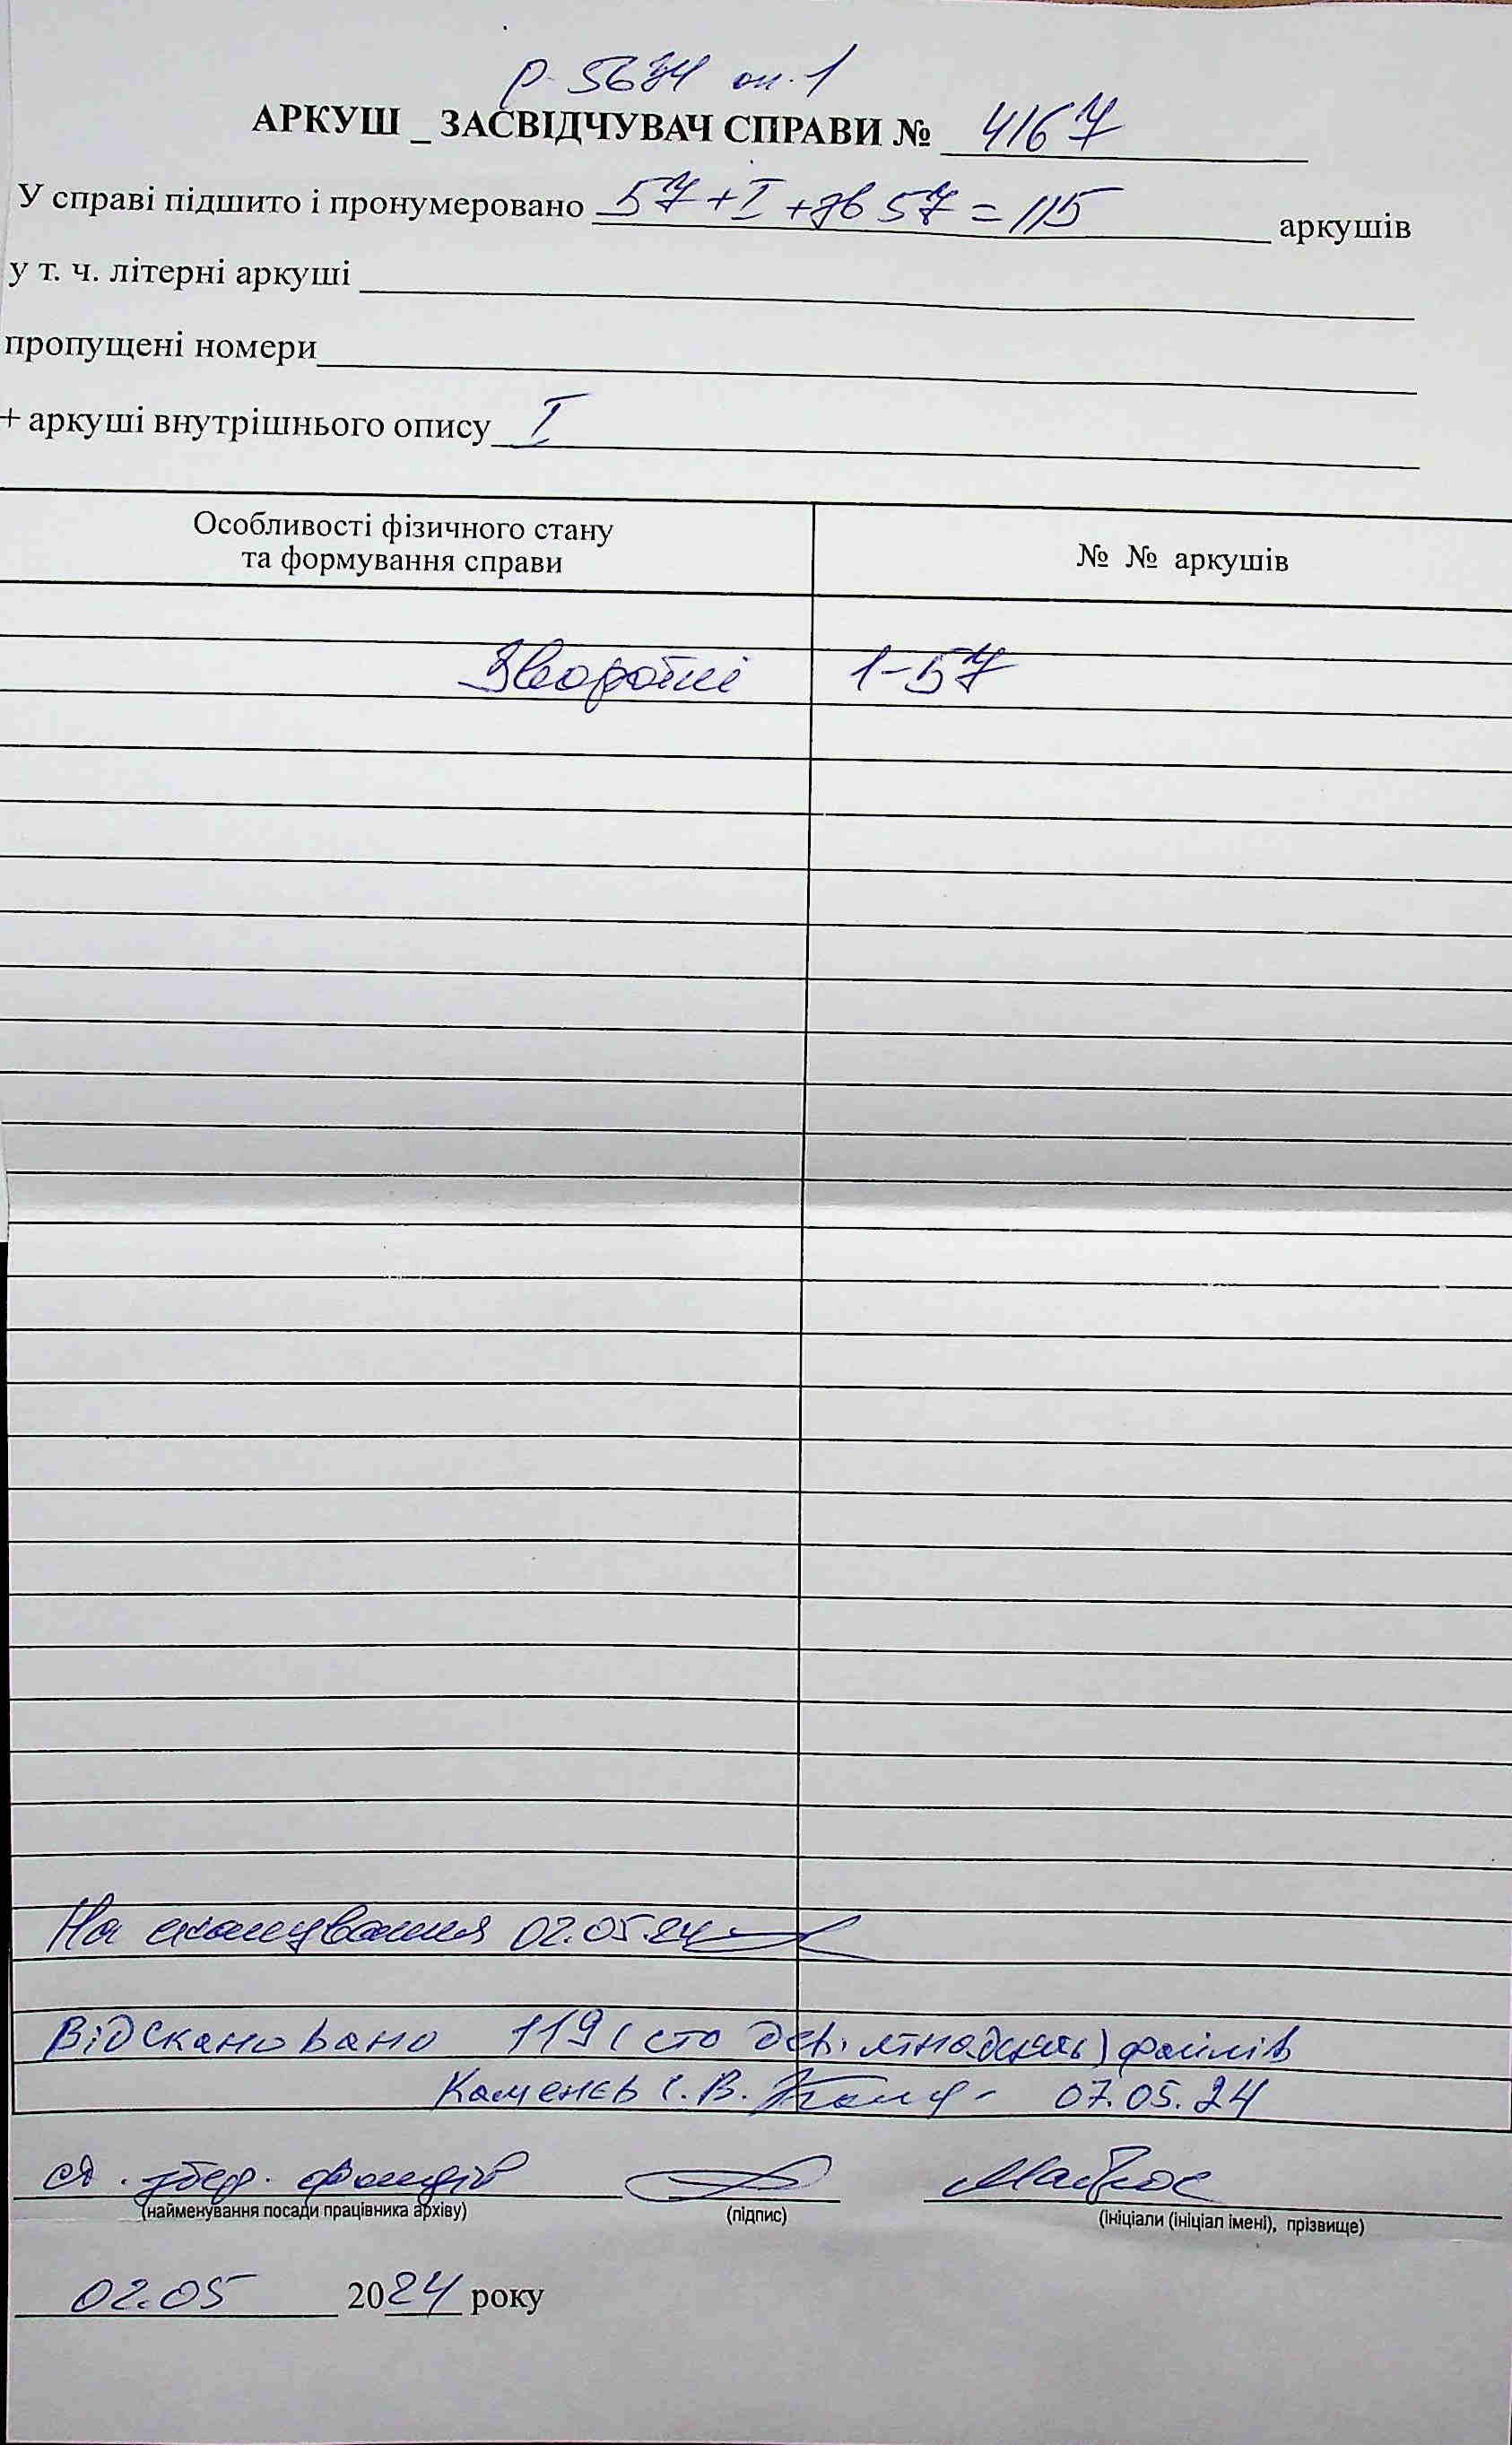 р-5634 оп.1
АРКУШ _ ЗАСВІДЧУВАЧ СПРАВИ № 4167
У справі підшито і пронумеровано 57+I+зв 57=115 аркушів
у т. ч. літерні аркуші
пропущені номери
+ аркуші внутрішнього опису I
Особливості фізичного стану та формування справи
№ № аркушів
Зворотні 1-57
На сканування 02.05.24
Відскановано 119 (сто дев'ятнадцять) файлів
Каменєв С.В. 07.05.24
збер. фондів
(найменування посади працівника архіву) (підпис) (ініціали (ініціал імені), прізвище)
02.05 2024 року